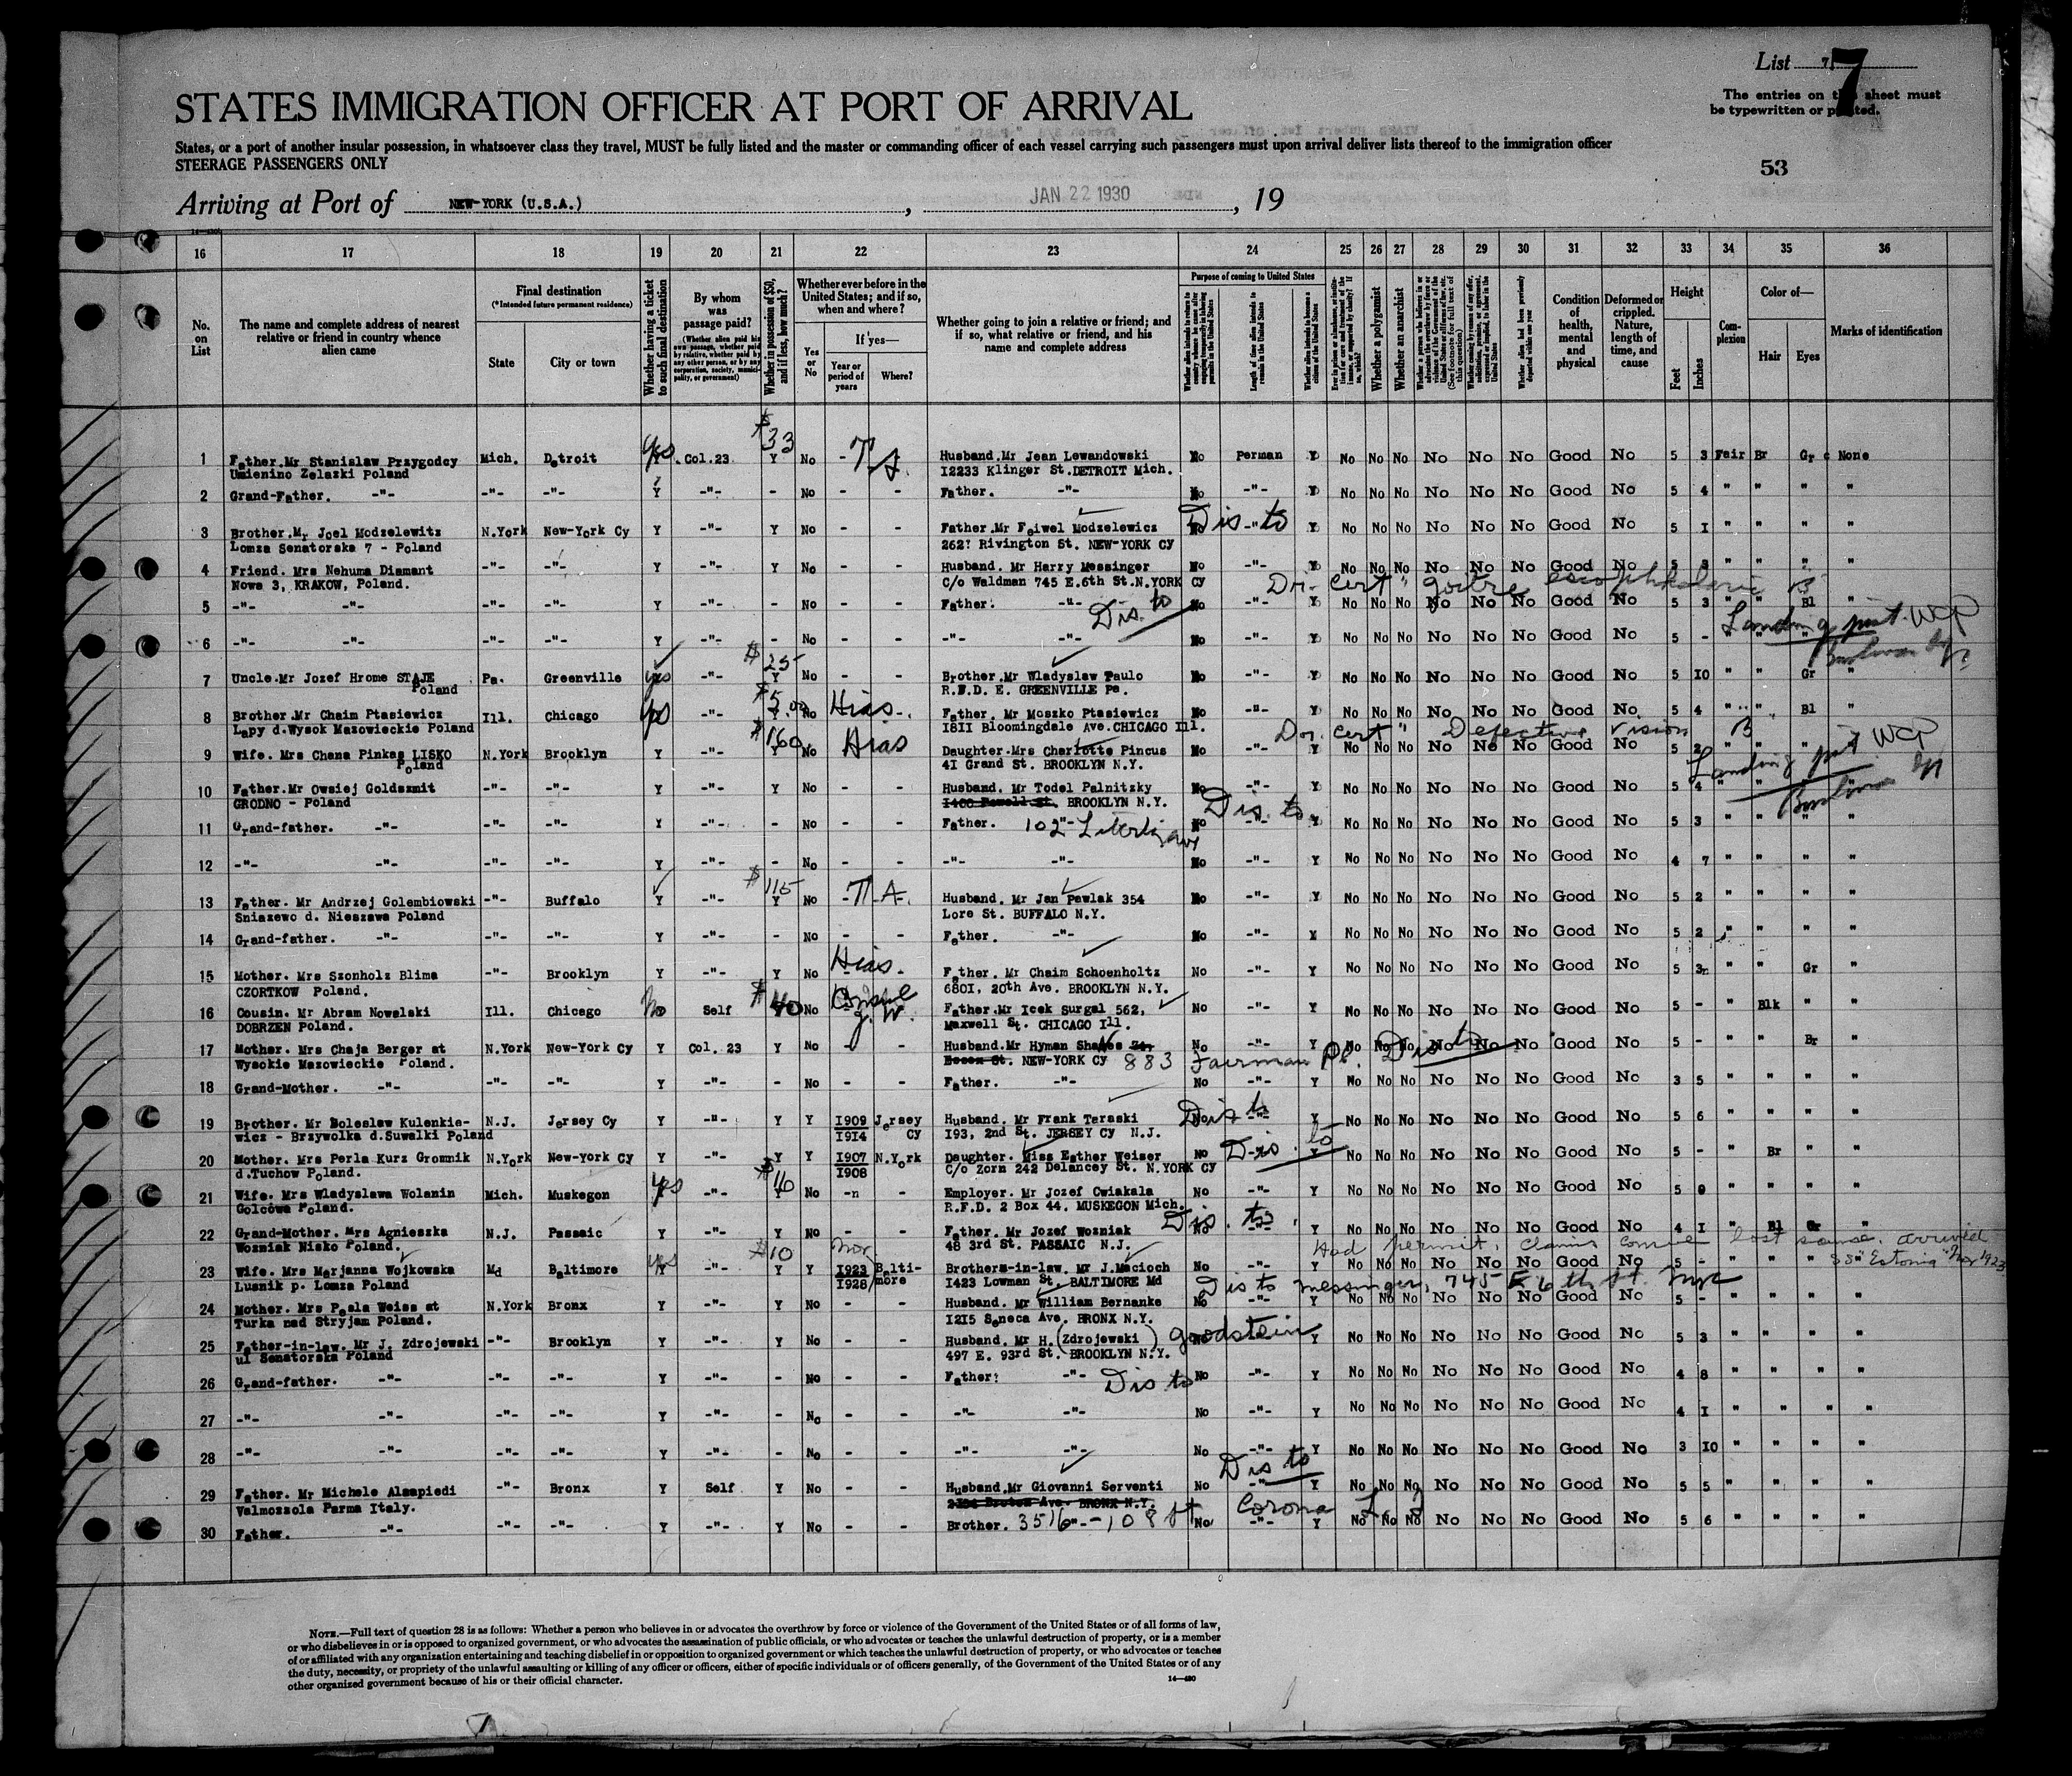 List 7
7
The entries on this sheet must
be typewritten or printed.
STATES IMMIGRATION OFFICER AT PORT OF ARRIVAL
States, or a port of another insular possession, in whatsoever class they travel, MUST be fully listed and the master or commanding officer of each vessel carrying such passengers must upon arrival deliver lists thereof to the immigration officer
STEERAGE PASSENGERS ONLY
53
Arriving at Port of NEW-YORK (U.S.A.) , JAN 22 1930 , 19
16 17 18 19 20 21 22 23 24 25 26 27 28 29 30 31 32 33 34 35 36
No. on List
The name and complete address of nearest relative or friend in country whence alien came
Final destination
(*Intended future permanent residence)
State City or town
Whether having a ticket to such final destination
By whom was passage paid?
(Whether alien paid his own passage, whether paid by relative, whether paid by any other person, or by any corporation, society, municipality, or government)
Whether in possession of $50, and if less, how much?
Whether ever before in the United States; and if so, when and where?
Yes or No
If yes—
Year or period of years Where?
Whether going to join a relative or friend; and if so, what relative or friend, and his name and complete address
Purpose of coming to United States
Length of time alien intends to remain in the United States
Whether a polygamist
Whether an anarchist
Condition of health, mental and physical
Deformed or crippled. Nature, length of time, and cause
Height
Feet Inches
Complexion
Color of—
Hair Eyes
Marks of identification
$33
1 Father.Mr Stanislaw Przygodcy Mich. Detroit Yes Col.23 Y No - Husband.Mr Jean Lewandowski No Perman Y No No No No No No Good No 5 3 Fair Br Gr None
Umienino Zelazki Poland 12233 Klinger St.DETROIT Mich.
2 Grand-Father. -"- -"- -"- Y -"- - No - - Father. -"- No -"- Y No No No No No No Good No 5 4 " " " "
3 Brother.Mr Joel Modzelewitz N.York New-York Cy Y -"- Y No - - Father.Mr Feiwel Modzelewicz Dis to Y No No No No No No Good No 5 1 " " " "
Lomza Senatorska 7 - Poland 262? Rivington St. NEW-YORK Cy
4 Friend. Mrs Nehuma Diamant -"- -"- Y -"- Y No - - Husband. Mr Harry Messinger No -"- Y No No No No No No Good No 5 3 " " " "
Nowa 3, KRAKOW, Poland. C/o Waldman 745 E.6th St.N.YORK Cy
cert goitre
5 -"- -"- -"- -"- Y -"- - No - - Father. -"- Dis. to No -"- Y No No No No No No Good No 5 3 " " Bl "
Landing WCP
6 -"- -"- -"- -"- Y -"- - No - - -"- -"- No -"- Y No No No No No No Good No 5 - " " " "
$25
7 Uncle.Mr Jozef Hrome STAJE Pa. Greenville yes -"- Y No - - Brother.Mr Wladyslaw Paulo No -"- Y No No No No No No Good No 5 10 " " Gr "
Poland R.F.D. E. GREENVILLE Pa.
8 Brother.Mr Chaim Ptasiewicz Ill. Chicago yes -"- Y No Hias Father. Mr Moszko Ptasiewicz No -"- Y No No No No No No Good No 5 4 " " Bl "
Lapy d.Wysok Mazowieckie Poland 1811 Bloomingdale Ave.CHICAGO Ill.
cert Defective vision B
$160
9 Wife. Mrs Chana Pinkas LISKO N.York Brooklyn Y -"- Y No Hias Daughter.Mrs Charlotte Pincus No -"- Y No No No No No No Good No 5 2 " " " "
Poland 41 Grand St. BROOKLYN N.Y.
Landing WCP
10 Father.Mr Owsiej Goldszmit -"- -"- Y -"- Y No - - Husband. Mr Todel Palnitzky No -"- Y No No No No No No Good No 5 4 " " " "
GRODNO - Poland BROOKLYN N.Y. Dis. to
11 Grand-father. -"- -"- -"- Y -"- - No - - Father. 102 -"- No -"- Y No No No No No No Good No 5 3 " " " "
12 -"- -"- -"- -"- Y -"- - No - - -"- -"- No -"- Y No No No No No No Good No 4 7 " " " "
$115
13 Father. Mr Andrzej Golembiowski -"- Buffalo Y -"- Y No Husband. Mr Jan Pawlak 354 No -"- Y No No No No No No Good No 5 2 " " " "
Sniazewo d. Nieszawa Poland Lore St. BUFFALO N.Y.
14 Grand-father. -"- -"- -"- Y -"- - No - - Father. -"- No -"- Y No No No No No No Good No 5 2 " " " "
15 Mother. Mrs Szonholz Blima -"- Brooklyn Y -"- Y No Hias Father. Mr Chaim Schoenholtz No -"- Y No No No No No No Good No 5 3 " " Gr "
CZORTKOW Poland. 6801, 20th Ave. BROOKLYN N.Y.
16 Cousin. Mr Abram Nowalski Ill. Chicago No Self $40 No Father.Mr Icek Surgal 562, No -"- Y No No No No No No Good No 5 - " Blk " "
DOBRZEN Poland. Maxwell St. CHICAGO Ill.
17 Mother. Mrs Chaja Berger at N.York New-York Cy Y Col. 23 Y No - - Husband.Mr Hyman No -"- Y No No No No No No Good No 5 - " " Br "
Wysokie Mazowieckie Poland. NEW-YORK Cy 883 Fairman Pl. Dis to
18 Grand-Mother. -"- -"- -"- Y -"- - No - - Father. -"- No -"- Y No No No No No No Good No 3 5 " " " "
19 Brother. Mr Boleslaw Kulenkie- N.J. Jersey Cy Y -"- Y Y 1909 Jersey Husband. Mr Frank Taraski Dis to Y No No No No No No Good No 5 6 " " " "
wicz - Brzywolka d.Suwalki Poland 1914 Cy 193, 2nd St. JERSEY Cy N.J.
20 Mother. Mrs Perla Kurz Gromnik N.York New-York Cy Y -"- Y Y 1907 N.York Daughter. Miss Esther Weiser No Dis. to Y No No No No No No Good No 5 - " Br " "
d.Tuchow Poland. 1908 C/o Zorn 242 Delancey St. N.YORK Cy
$16
21 Wife. Mrs Wladyslawa Wolanin Mich. Muskegon yes -"- Y No - - Employer. Mr Jozef Cwiakala No -"- Y No No No No No No Good No 5 9 " " " "
Golcowa Poland. R.F.D. 2 Box 44. MUSKEGON Mich.
22 Grand-Mother. Mrs Agnieszka N.J. Passaic Y -"- Y No - - Father. Mr Jozef Wozniak Dis. to Y No No No No No No Good No 4 1 " Bl Gr "
Wozniak Nisko Poland. 48 3rd St. PASSAIC N.J.
Had permit, claims lost same. arrived
SS "Estonia" Nov 1923
$10
23 Wife. Mrs Marjanna Wojkowska Md Baltimore yes -"- Y Y 1923 Balti- Brothers-in-law. Mr J.Macioch No -"- Y No No No No No No Good No 5 - " " "
Lusnik p. Lomza Poland 1928 more 1423 Lowman St. BALTIMORE Md
Dis to Messinger, 745 E 6th St. NYC
24 Mother. Mrs Paala Weiss at N.York Bronx Y -"- Y No - - Husband. Mr William Bernanke No -"- Y No No No No No No Good No 5 - " " " "
Turka nad Stryjam Poland. 1215 Seneca Ave. BRONX N.Y.
25 Father-in-law. Mr J. Zdrojewski -"- Brooklyn Y -"- Y No - - Husband. Mr H. (Zdrojewski) Goodstein Y No No No No No No Good No 5 3 " " " "
ul Senatorska Poland 497 E. 93rd St. BROOKLYN N.Y.
26 Grand-father. -"- -"- -"- Y -"- - No - - Father: -"- Dis to No -"- Y No No No No No No Good No 4 8 " " " "
27 -"- -"- -"- -"- Y -"- - No - - -"- -"- No -"- Y No No No No No No Good No 4 1 " " " "
28 -"- -"- -"- -"- Y -"- - No - - -"- -"- No -"- Y No No No No No No Good No 3 10 " " " "
Dis to
29 Father. Mr Michele Alsapiedi -"- Bronx Y Self Y No - - Husband.Mr Giovanni Serventi No -"- Y No No No No No No Good No 5 5 " " " "
Valmozzola Parma Italy. BRONX N.Y. Corona L. I
30 Father. -"- -"- -"- Y -"- Y No - - Brother. 3516 - 108 St No -"- Y No No No No No No Good No 5 6 " " " "
NOTE.—Full text of question 28 is as follows: Whether a person who believes in or advocates the overthrow by force or violence of the Government of the United States or of all forms of law,
or who disbelieves in or is opposed to organized government, or who advocates the assassination of public officials, or who advocates or teaches the unlawful destruction of property, or is a member
of or affiliated with any organization entertaining and teaching disbelief in or opposition to organized government or which teaches the unlawful destruction of property, or who advocates or teaches
the duty, necessity, or propriety of the unlawful assaulting or killing of any officer or officers, either of specific individuals or of officers generally, of the Government of the United States or of any
other organized government because of his or their official character.
14—490